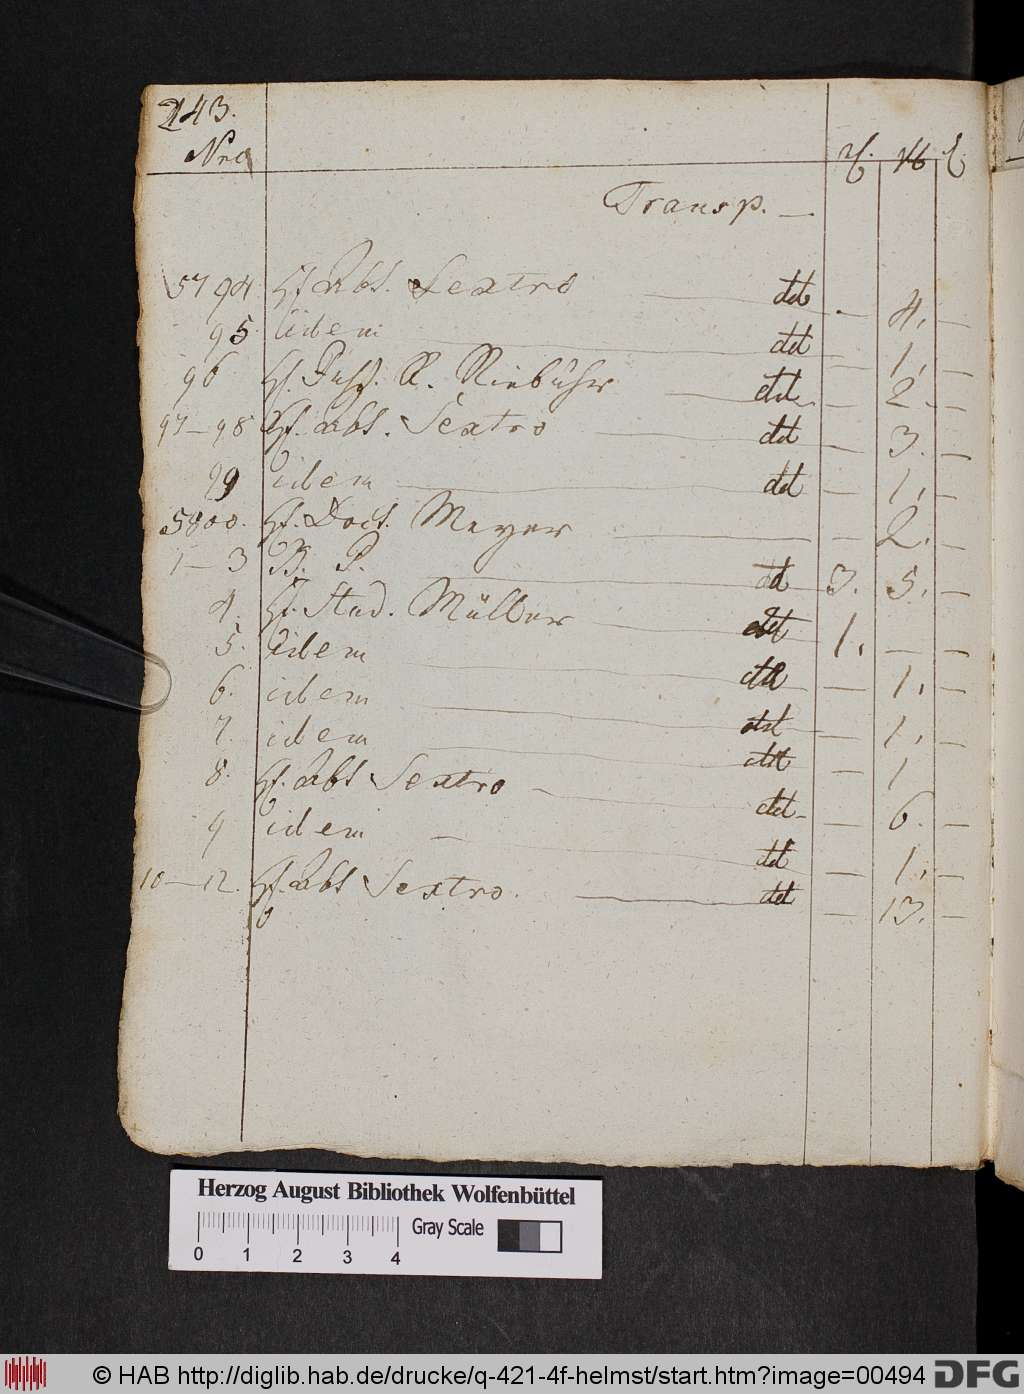 243.
Nro ₰. 16 ₰
Transp. —
5794 H. Abt. Sextro — dt — 4. —
95. idem — dt — 1. —
96 H. R. Niebuhr — dt — 2. —
97—98 H. Abt. Sextro — dt — 3. —
99 idem — dt — 1. —
5800. H. Doct. Meyer — — 2. —
1—3 B. P. — dt 3. 5. —
4. H. Stud. Müller — dt 1. — —
5. idem — dt — 1. —
6. idem — dt — 1. —
7. idem — dt — 1 —
8. H. Abt Sextro — dt — 6. —
9 idem — dt — 1. —
10—12. H. Abt Sextro. — dt — 13. —
Herzog August Bibliothek Wolfenbüttel
0 1 2 3 4 Gray Scale
© HAB http://diglib.hab.de/drucke/q-421-4f-helmst/start.htm?image=00494 DFG